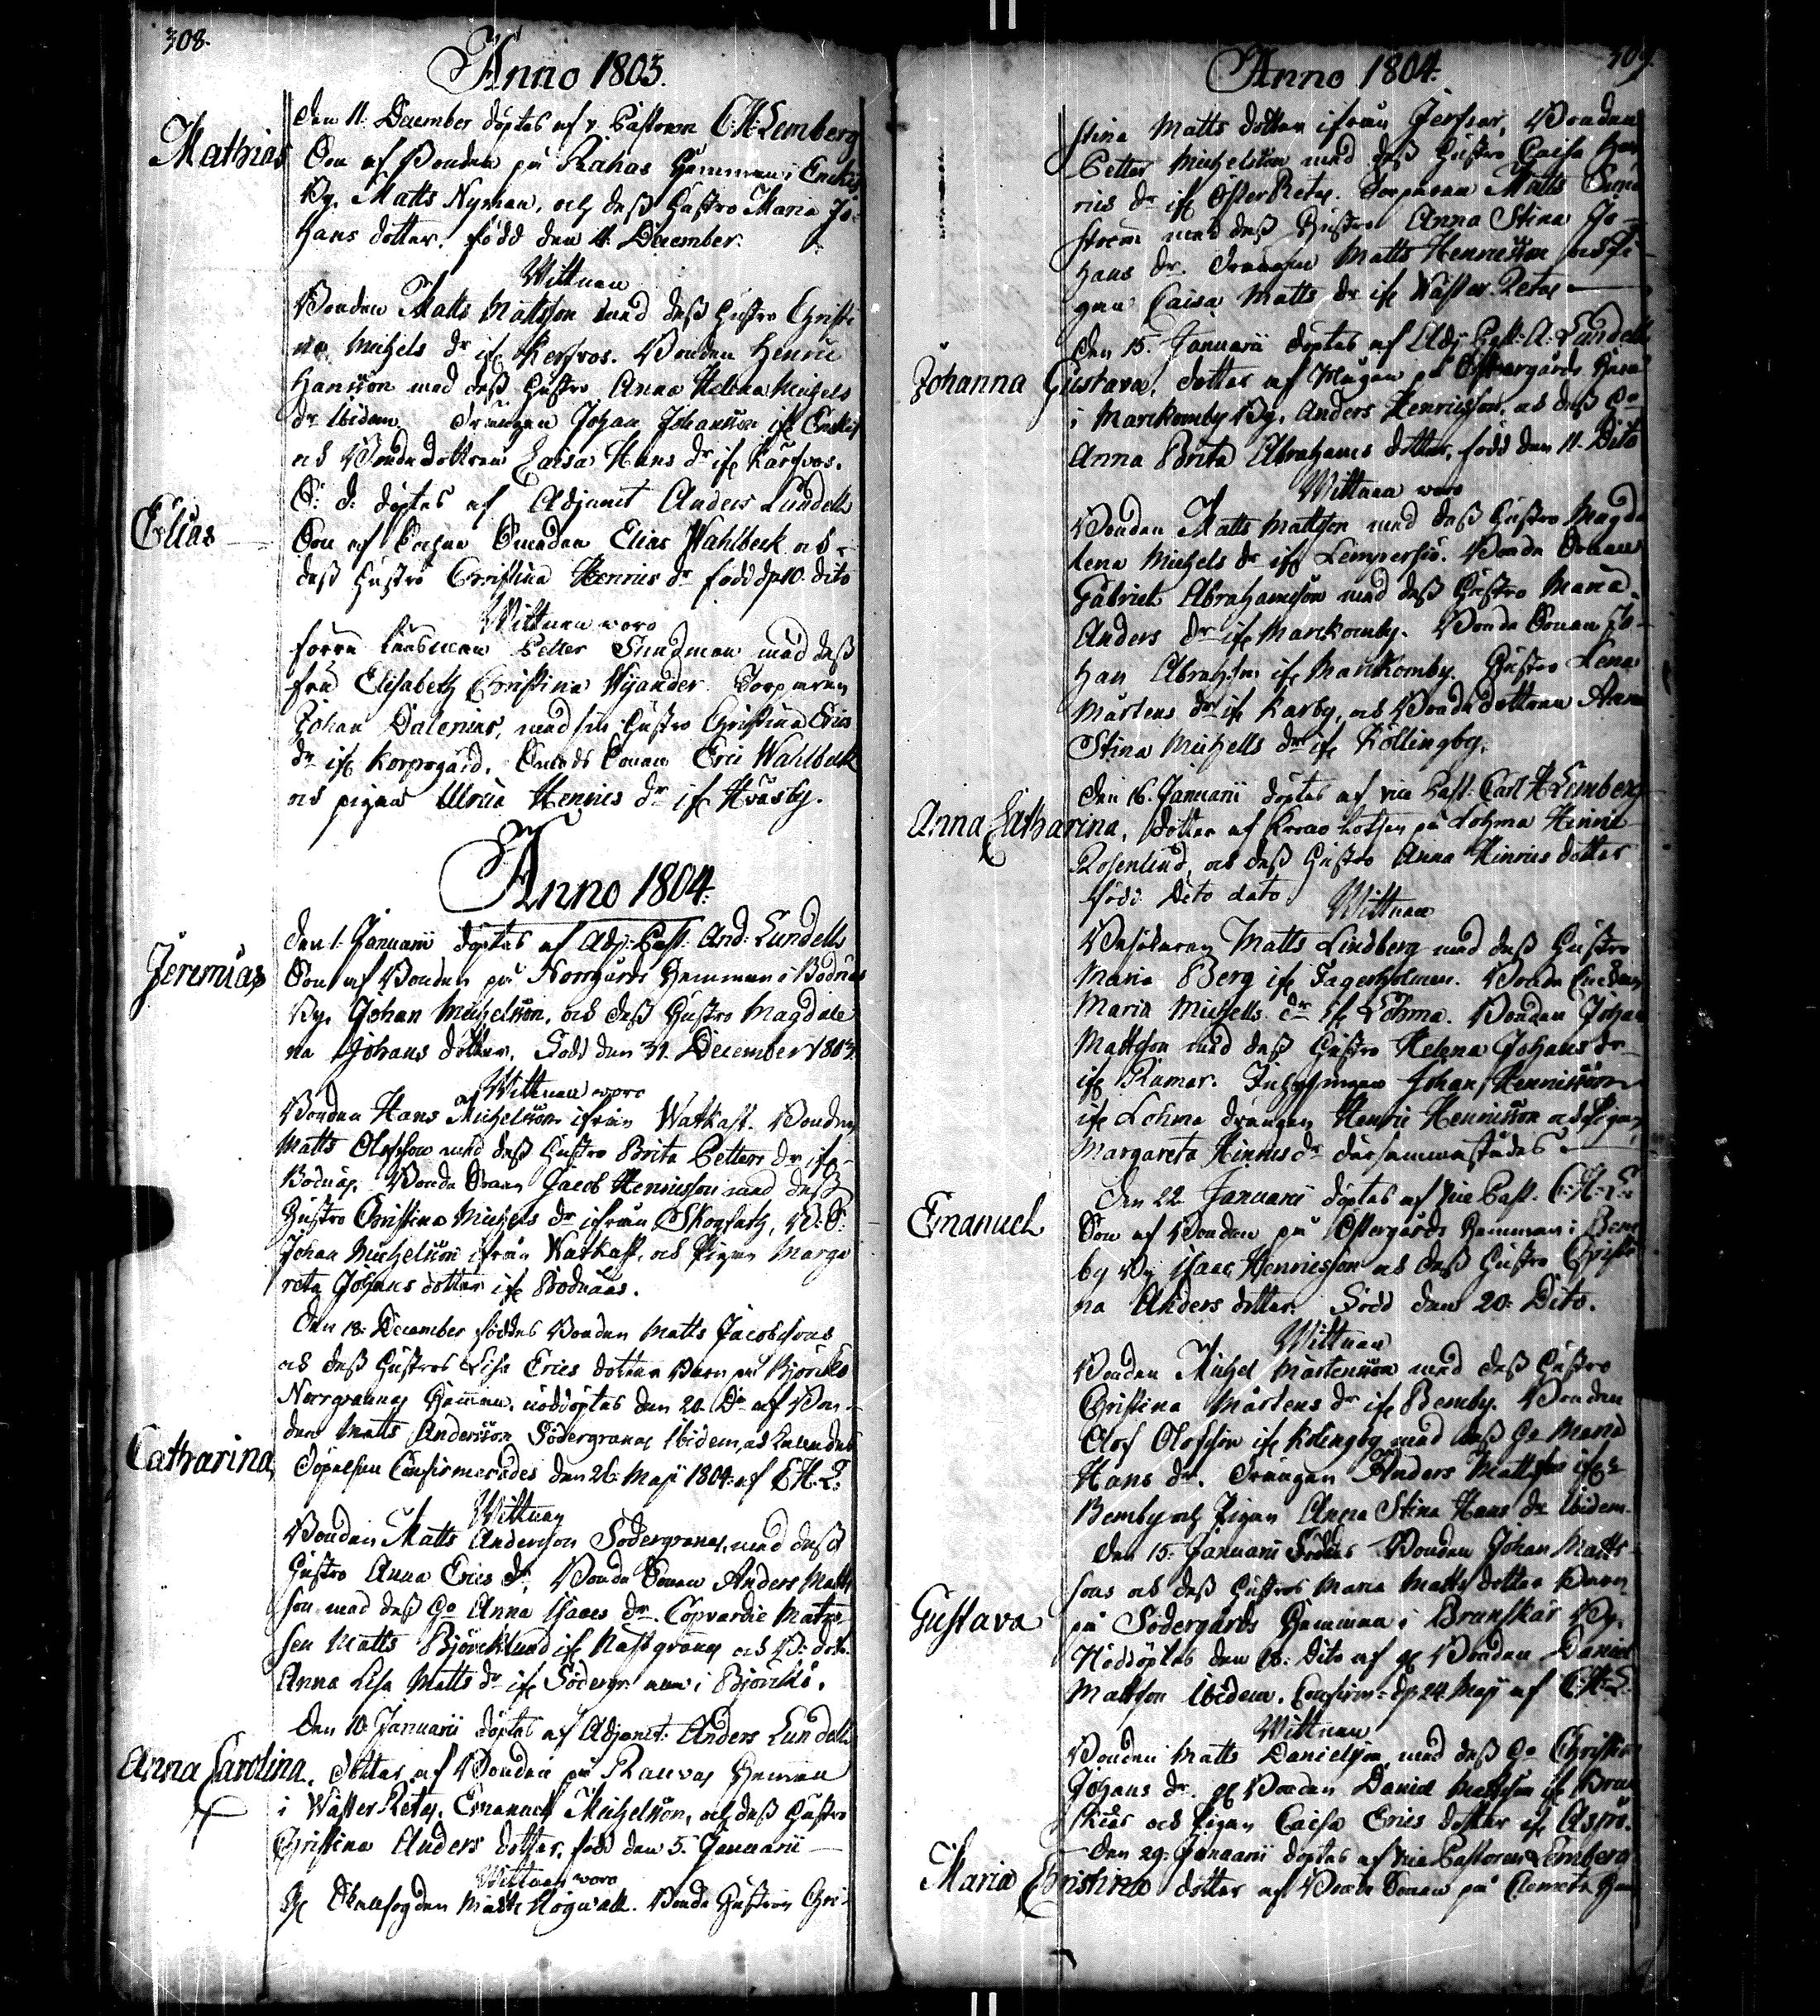 308.
Anno 1803.
Den 11. December döptes af v. Pastoren C. H. Lemberg
Mathias Son af Bonden på Rahas Hemman i Enekis
By, Matts Nyman, och dess Hustro Maria Jo-
hans dotter, född den 4. December.
Wittnen
Bonden Matts Mattsson med dess Hustro Christi
na Michels dr ifr. Kersvos. Bonden Henric
Hansson med dess Hustro Anna Helena Michels
dr ibidem. Drängen Johan Johansson ifr.
och Bonde dottren Caisa Hans dr ifr. Karsvos.
S. D. döptes af Adjunct Anders Lundell
Elias Son af Sochne Smeden Elias Wahlbeck och
dess Hustro Christina Henrics dr född d. 10. dito
Wittnen woro
förre Länsman Petter Sundman med dess
fru Elisabeth Christina Wijander. Torparen
Johan Dalenius, med sin Hustro Christina Erics
dr ifr. Korpogård. Smeds Sonen Eric Wahlbeck
och pigan Ulrica Henrics dr ifr. Hväsby.
Anno 1804.
Den 1. Januarii döptes af Adj. Past. And. Lundell
Jeremias Son af Bonden på Norrgårds Hemman i Bodnäs
By, Johan Michelsson, och dess Hustro Magdale
na Johans dotter. Född den 31. December 1803.
Wittnen woro
Bonden Hans Michelsson ifrån Watkast. Bonden
Matts Olofsson med dess Hustro Brita Petters dr ifr.
Bodnäs. Bonde Sonen Jacob Henricsson med dess
Hustro Christina Michels dr ifrån B. S.
Johan Michelsson ifrån Watkast, och Pigan Marga
reta Johans dotter ifr. Bodnääs.
Den 18. December föddes Bonden Matts Jacobssons
och dess Hustros Lisa Erics dotters Barn på Björckö
Norrgrannas Hemman, nöddöptes den 20. Do af Bon-
den Matts Andersson Södergrannas ibidem,
Catharina, Döpelsen Confirmerades den 26. Maji 1804. af C. H. L.
Wittnen
Bonden Matts Andersson Södergrannas, med dess
Hustro Anna Erics dr, Bonde Sonen Anders Matts
son med dess Ho Anna Isaacs dr. Copvardie Matro
sen Matts Björcklund ifr. Nästgrannas och B. dott.
Anna Lisa Matts dr ifr. Södergr. i Björckö.
Den 10. Januarii döptes af Adjunct. Anders Lundell
Anna Carolina, dotter af Bonden på Rauvas Hemman
i Wäster Retas, Emanuel Michelsson, och dess Hustro
Christina Anders dotter, född den 5. Januarii
Wittnen woro
Matts Högwall. Bonde Hustron Chri-
309.
Anno 1804.
stina Matts dotter ifrån Jersver, Bonden
Petter Michelsson med dess Hustro Caisa Hen
rics dr ifr. Öster Retas. Torparen Matts Sund
ström med dess Hustro Anna Stina Jo-
hans dr. Drängen Matts Henricsson och Pi-
gan Caisa Matts dr ifr. Wäster Retas
Den 15. Januarii döptes af Adj. Past. A. Lundell
Johanna Gustava, dotter af Mågen på Östergårds Hem
i Marckomby By, Anders Henricsson, och dess Ho
Anna Brita Abrahams dotter, född den 11. Dito
Wittnen woro
Bonden Matts Mattsson med dess Hustro Magda
lena Michels dr ifr. Lempersiö. Bonde Sonen
Gabriel Abrahamsson med dess Hustro Maria
Anders dr ifr. Marckomby. Bonde Sonen Jo-
han Abrahsson ifr. Marckomby. Hustro Lena
Mårtens dr ifr. Karby, och Bonde dottren Anna
Stina Michells dr ifr. Köllingby.
Den 16. Januarii döptes af vice Past. Carl H. Lemberg
Anna Catharina, dotter af Krono Lotsen på Lohma Hinric
Rosenlund, och dess Hustro Anna Hinrics dotter
född Dito dato
Wittnen
Besökaren Matts Lindberg med dess Hustro
Maria Berg ifr. Fagerholmen. Bonde Enckan
Maria Michells dr ifr. Lohma. Bonden Johan
Mattsson med dess Hustro Helena Johans dr
ifr. Ramar. Inhysingen Johan Henricsson
ifr. Lohma drängen Henric Henricsson och Pigan
Margareta Hinrics dr därsammastädes.
Den 22 Januarii döptes af vice Past. C. H. L.
Emanuel Son af Bonden på Östergårds Hemman i Bem
by By Isaac Henricsson och dess Hustro Christi
na Anders dotter. Född den 20. Dito.
Wittnen
Bonden Michel Mårtensson med dess Hustro
Christina Mårtens dr ifr. Bemby. Bonden
Olof Olofsson ifr. Kölingby med dess Ho Maria
Hans dr. Drängen Anders Mattsson ifr.
Bemby och Pigan Anna Stina Hans dr ibidem.
Den 15. Januarii Föddes Bonden Johan Matts
sons och dess Hustros Maria Matts dotter Barn
Gustava på Södergårds Hemman i Brunskär By,
Nöddöptes den 18. Dito af Bonden Daniel
Mattsson ibidem. Confirm. d. 24. Maji af C. H. L.
Wittnen
Bonden Matts Danielsson med dess Ho Christina
Johans dr. Bonden Daniel Mattsson ifr. Brun
skär och Pigan Caisa Erics dotter ifr. Aspö.
Den 29. Januarii döptes af vice Pastoren Lemberg
Maria Christina dotter af Bonde Sonen på Clemets Hem